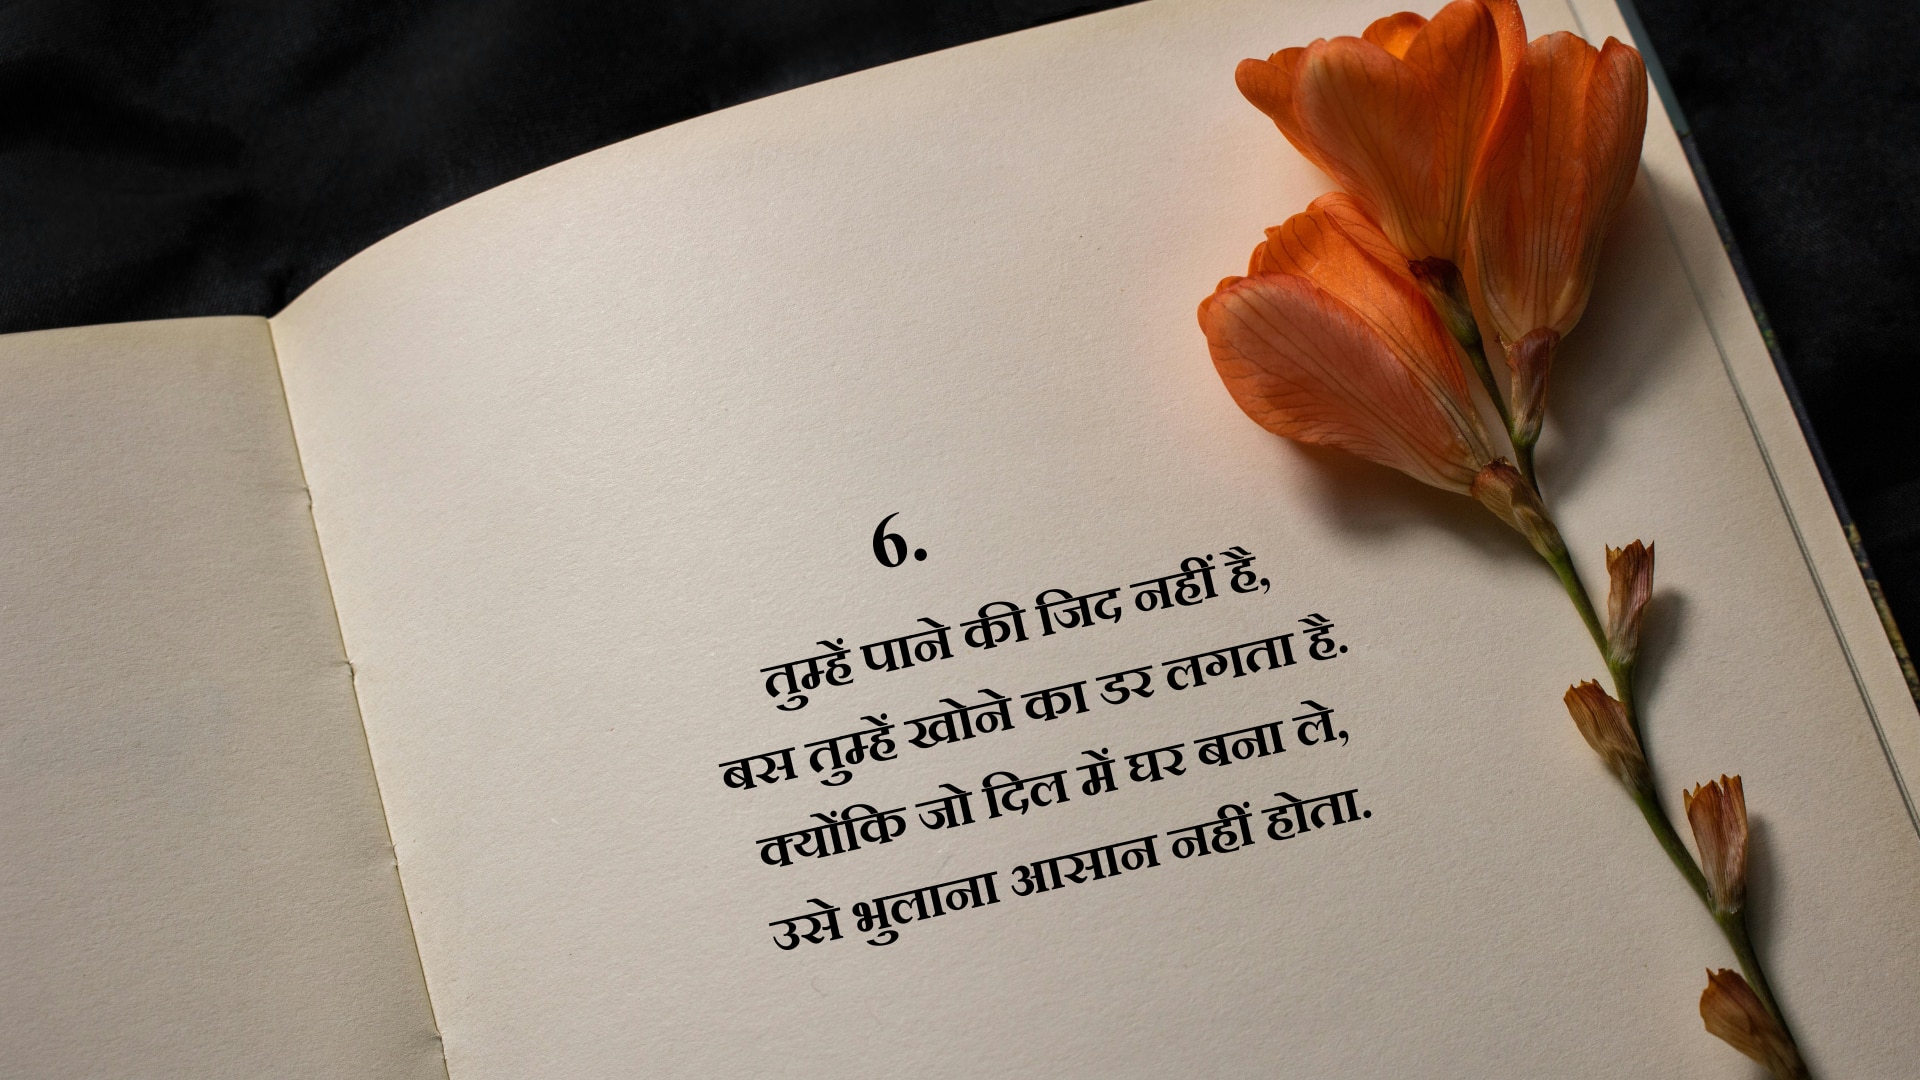 6.
तुम्हें पाने की जिद नहीं है,
बस तुम्हें खोने का डर लगता है.
क्योंकि जो दिल में घर बना ले,
उसे भुलाना आसान नहीं होता.